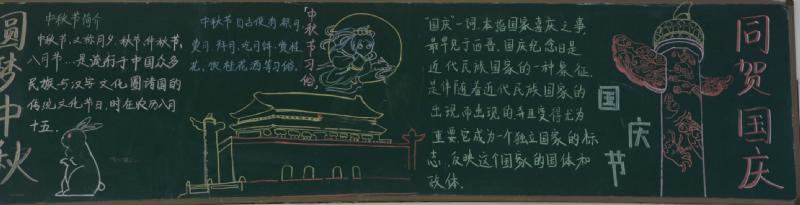 圆梦中秋
中秋节简介
中秋节,又称月夕、秋节、仲秋节、
八月节...是流行于中国众多
民族与汉字文化圈诸国的
传统文化节日,时在农历八月
十五。
中秋节自古便有祭月、
赏月、拜月、吃月饼、赏桂
花、饮桂花酒等习俗。
「中秋节习俗」
“国庆”一词,本指国家喜庆之事,
最早见于西晋。国庆纪念日是
近代民族国家的一种象征,
是伴随着近代民族国家的
出现而出现的,并且变得尤为
重要。它成为一个独立国家的标
志,反映这个国家的国体和
政体。
国庆节
同贺国庆